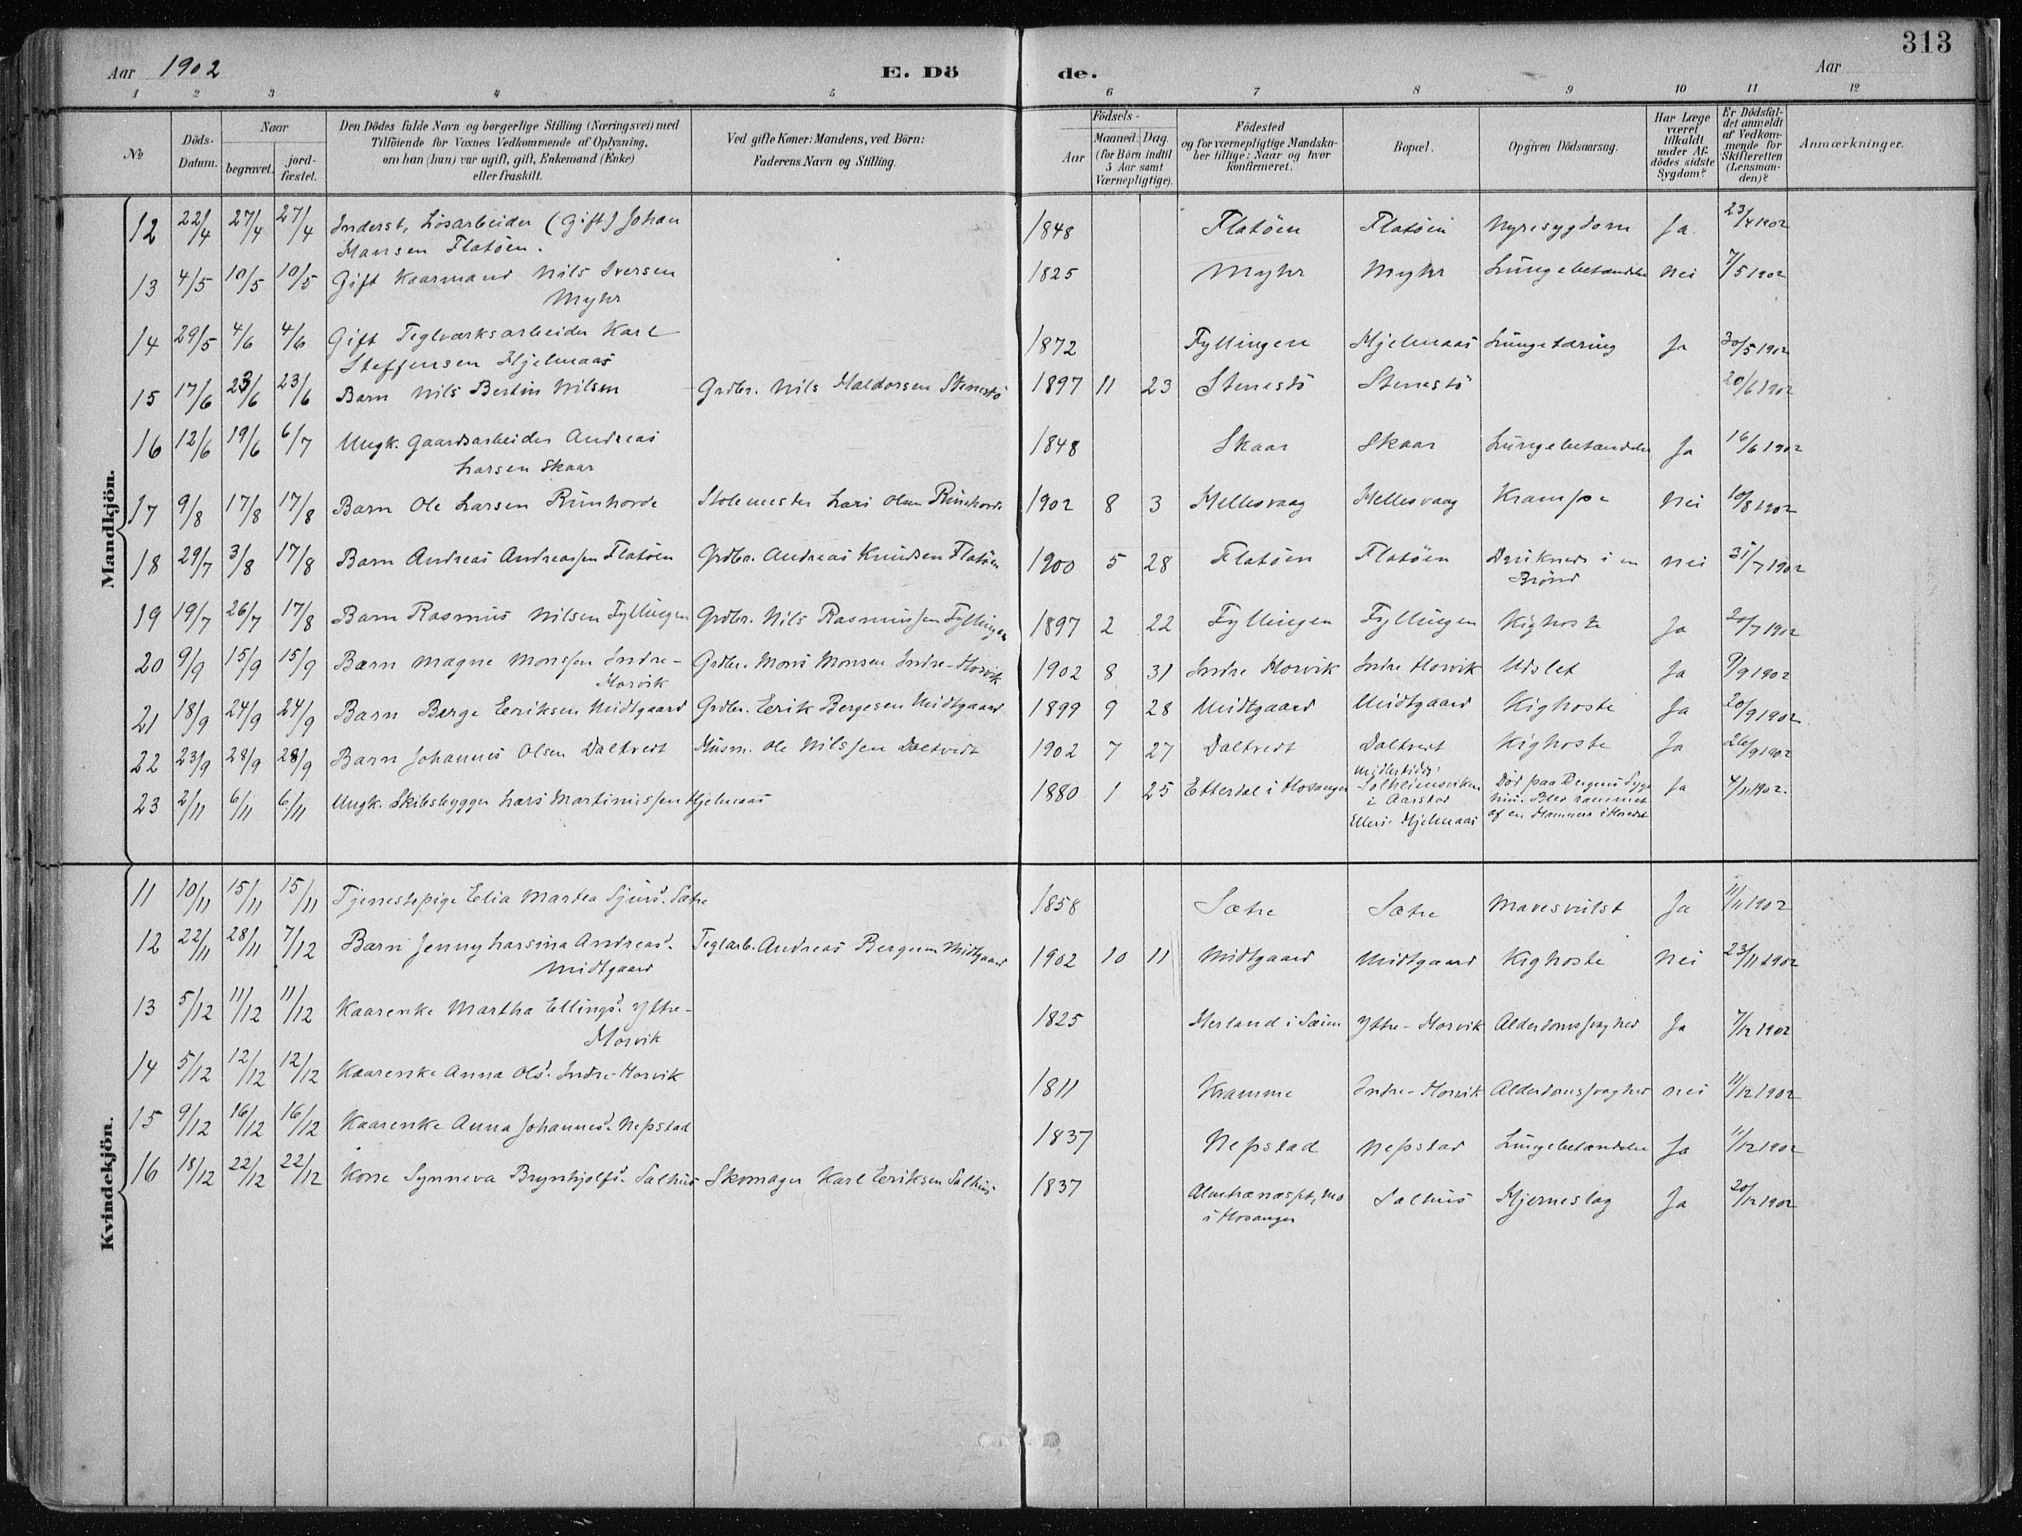 313
Aar 1902 E. Dö de. Aar
1 2 3 4 5 6 7 8 9 10 11 12
№
Döds-Datum.
Naar
begravet.
jord-fæstet.
Den Dödes fulde Navn og borgerlige Stilling (Næringsvei) med
Tilföiende for Voxnes Vedkommende af Oplysning,
om han (hun) var ugift, gift, Enkemand (Enke)
eller fraskilt.
Ved gifte Koner: Mandens, ved Börn:
Faderens Navn og Stilling.
Födsels-
Aar
Maaned. Dag.
(for Börn indtil
5 Aar samt
Værnepligtige).
Födested
og for værnepligtige Mandska-
ber tillige: Naar og hvor
Konfirmeret.
Bopæl.
Opgiven Dödsaarsag.
Har Læge
været
tilkaldt
under Af-
dödes sidste
Sygdom?
Er Dödsfal-
det anmeldt
af Vedkom-
mende for
Skifteretten
(Lensman-
den)?
Anmærkninger.
Mandkjön.
12 22/4 27/4 27/4 Inderst, Løsarbeider (Gift) Johan 1848 Flatöen Flatöen Nyresygdom Ja 23/4 1902
Hansen Flatöen.
13 4/5 10/5 10/5 Gift Kaarmand Nils Iversen 1825 Myhr Myhr Lungebetændelse Nei 7/5 1902
Myhr
14 29/5 4/6 4/6 Gift Teglværksarbeider Karl 1872 Fyllingen Hjelmaas Lungetæring Ja 30/5 1902
Steffensen Hjelmaas
15 17/6 23/6 23/6 Barn Nils Bertin Nilsen Grdbr. Nils Haldorsen Stenestö 1897 11 23 Stenestö Stenestö 20/6 1902
16 12/6 19/6 6/7 Ungk. Gaardsarbeider Andreas 1848 Skaar Skaar Lungebetændelse Ja 16/6 1902
Larsen Skaar
17 9/8 17/8 17/8 Barn Ole Larsen Rünhovde Stolemester Lars Olsen Rünhovde 1902 8 3 Hellesvaag Hellesvaag Krampe Nei 10/8 1902
18 29/7 3/8 17/8 Barn Andreas Andreassen Flatöen Grdbr. Andreas Knudsen Flatöen 1900 5 28 Flatöen Flatöen Druknede i en Nei 31/7 1902
Brönd
19 19/7 26/7 17/8 Barn Rasmus Nilsen Fyllingen Grdbr. Nils Rasmussen Fyllingen 1897 2 22 Fyllingen Fyllingen Kighoste Ja 20/7 1902
20 9/9 15/9 15/9 Barn Magne Monssen Indre- Grdbr. Mons Monsen Indre-Horvik 1902 8 31 Indre Horvik Indre Horvik Udslet Ja 9/9 1902
Horvik
21 18/9 24/9 24/9 Barn Berge Eeriksen Midtgaard Grdbr. Erik Bergesen Midtgaard 1899 9 28 Midtgaard Midtgaard Kighoste Ja 20/9 1902
22 23/9 28/9 28/9 Barn Johannes Olsen Daltveit Husm. Ole Nilssen Daltveit 1902 7 27 Daltveit Daltveit Kighoste Ja 26/9 1902
23 2/11 6/11 6/11 Ungk. Skibsbygger Lars Martinussen Hjelmaas 1880 1 25 Etterdal i Hosanger Midlertidig: Solheimsviken i Aarstad Ellers Hjelmaas Död paa Bergens Syge hus. Blev rammet af en Hammer i Hovedet Ja 4/11 1902.
Kvindekjön.
11 10/11 15/11 15/11 Tjenestepige Elia Martea Sjursd. Sætre 1858 Sætre Sætre Mavesvulst Ja 11/11 1902
12 22/11 28/11 7/12 Barn Jenny Larsina Andreasd. Teglarb. Andreas Bergesen Midtgaard 1902 10 11 Midtgaard Midtgaard Kighoste Nei 23/11 1902
Midtgaard
13 5/12 11/12 11/12 Kaarenke Martha Ellingsd. Ytre- 1825 Herland i Sæim Ytre-Horvik Alderdomssvaghed Ja 7/12 1902
Horvik
14 5/12 12/12 12/12 Kaarenke Anna Olsd. Indre-Horvik 1811 Kramme Indre-Horvik Alderdomssvaghed Nei 11/12 1902
15 9/12 16/12 16/12 Kaarenke Anna Johannesd. Nepstad 1837 Nepstad Nepstad Lungebetændelse Ja 11/12 1902
16 18/12 22/12 22/12 Kone Synneva Brynhjolfsd. Salhus Skomager Karl Eeriksen Salhus 1837 i Hosanger Salhus Hjerneslag Ja 20/12 1902